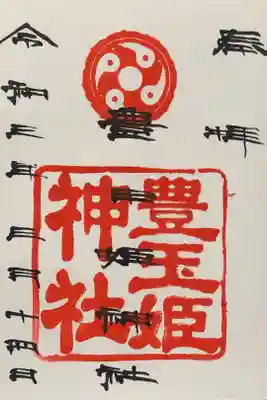 奉拝
豊玉姫神社
豊玉姫
神社
令和 年 月十 日